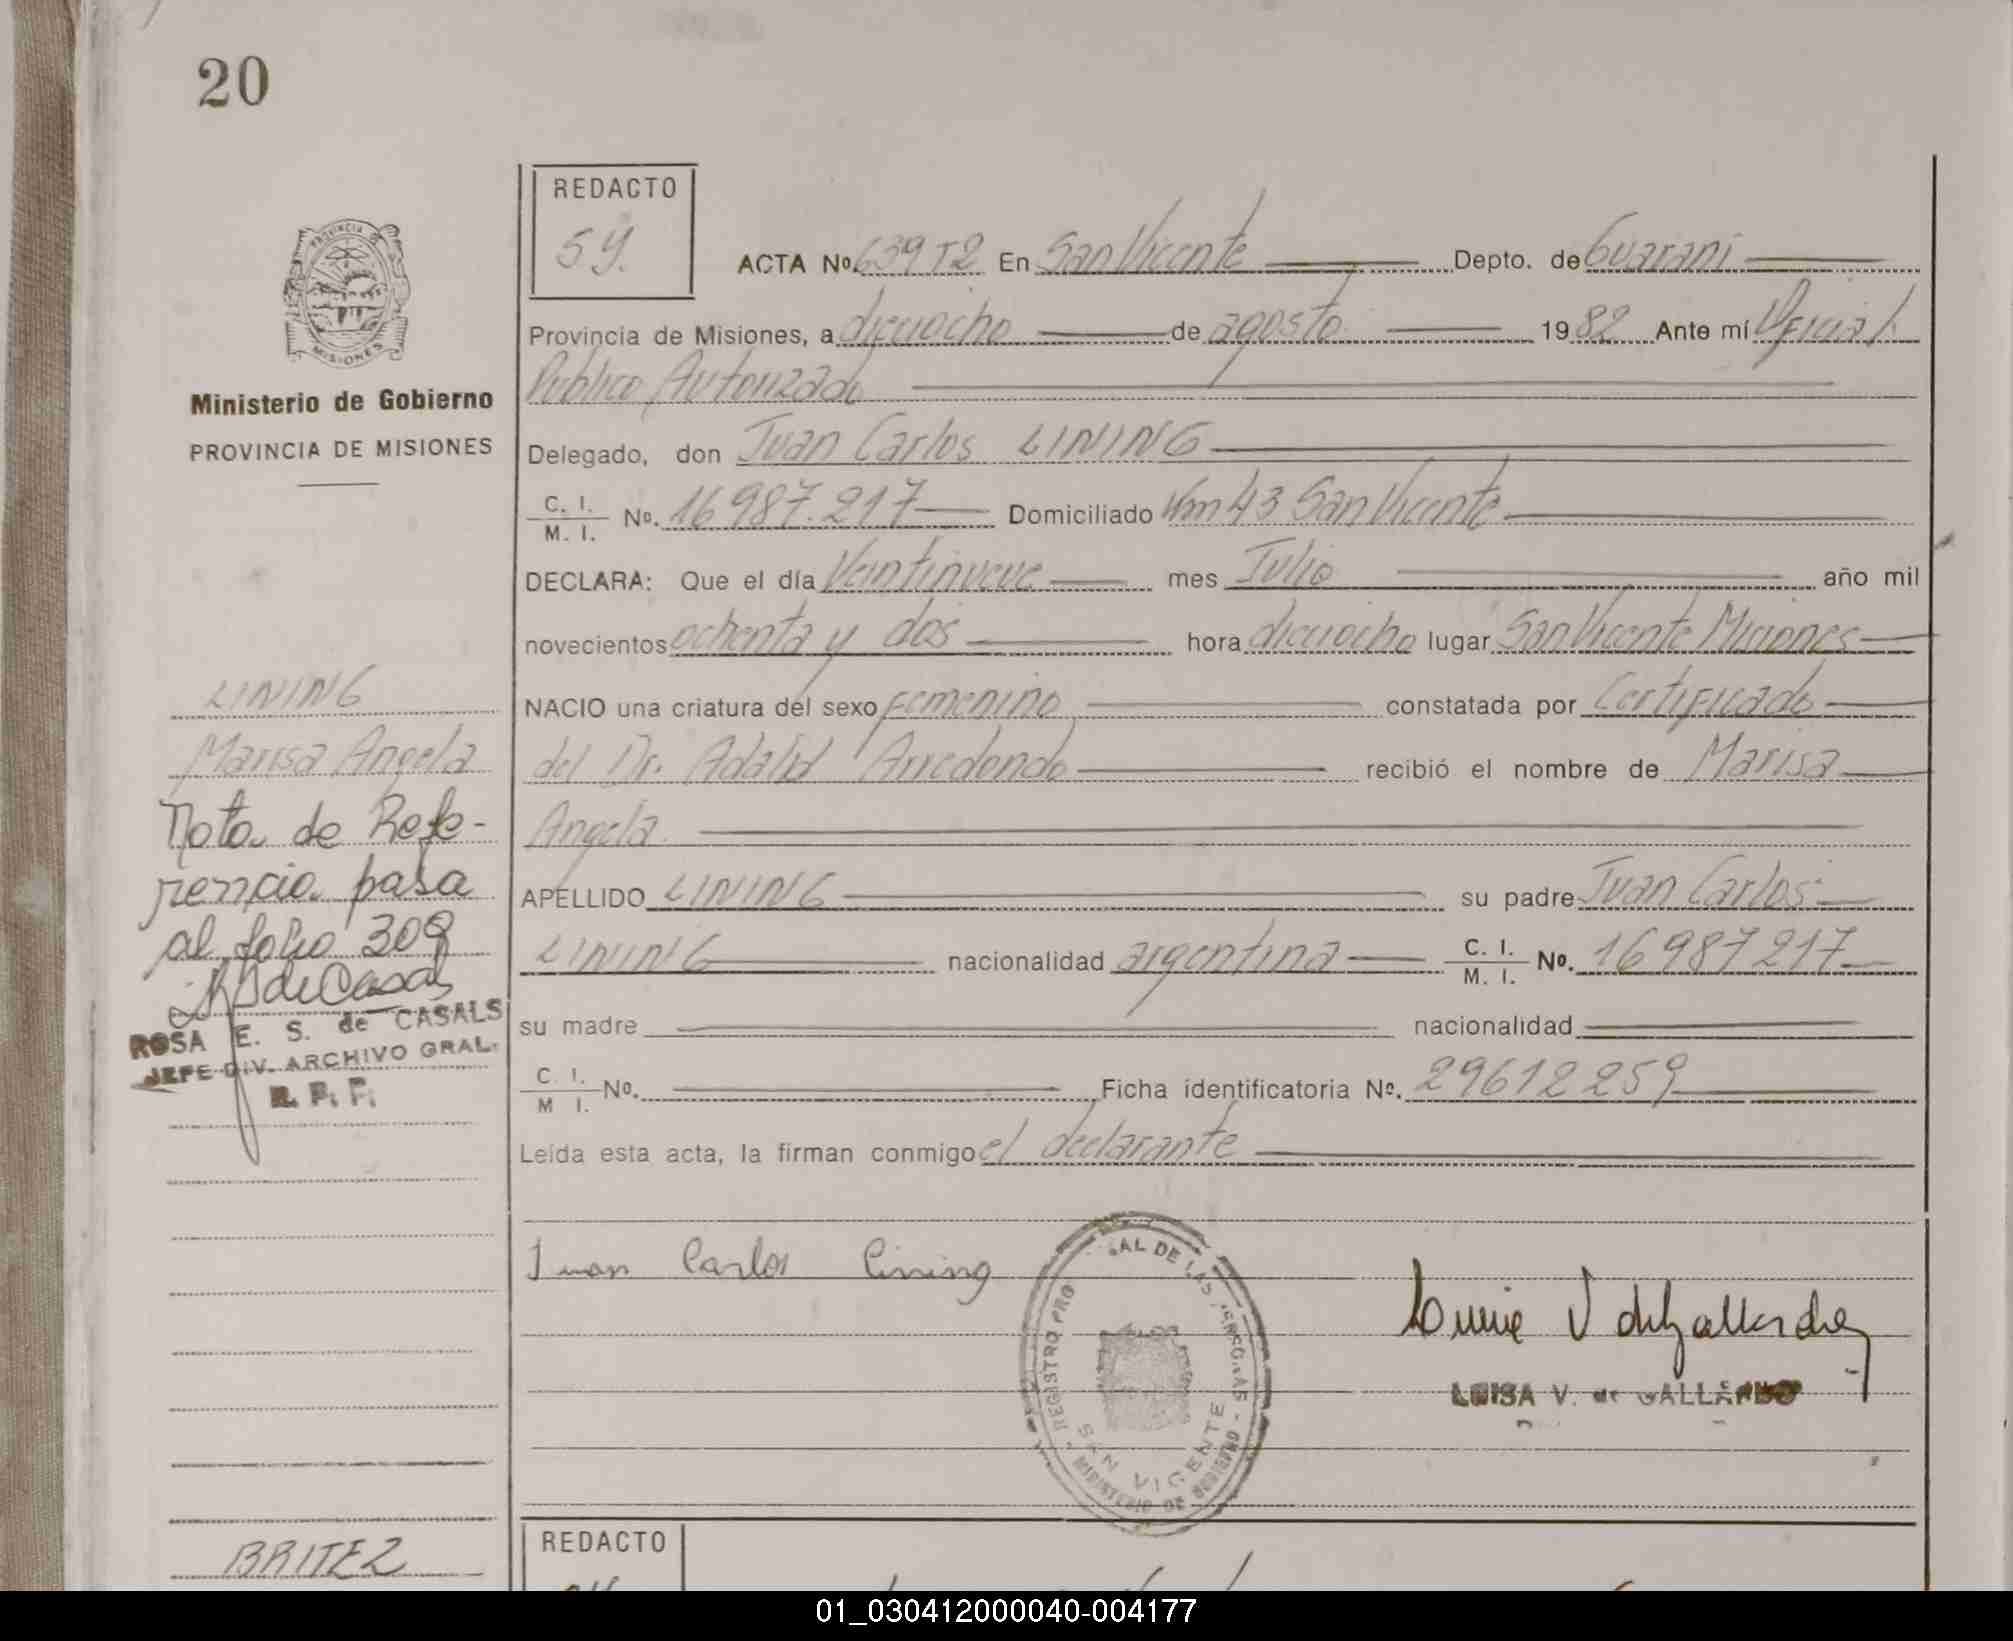 20
REDACTO
S y.
ACTA No. 639 T2 En San Vicente Depto. de Guaraní
PROVINCIA
MISIONES
Provincia de Misiones, a dieciocho de agosto 1982 Ante mí Oficial
Ministerio de Gobierno
Publico Autorizado
PROVINCIA DE MISIONES
Delegado, don Juan Carlos LINING
C. I.
M. I. No. 16 987.217 Domiciliado Km 43 San Vicente
DECLARA: Que el día Veintinueve mes Julio año mil
novecientos ochenta y dos hora dieciocho lugar San Vicente Misiones
LINING
NACIO una criatura del sexo Femenino constatada por Certificado
Marisa Angela
del Dr. Adalid Arredondo recibió el nombre de Marisa
Nota de Refe-
Angela
rencia pasa
APELLIDO LINING su padre Juan Carlos
al folio 309
LINING nacionalidad argentina C. I. M. I. No. 16 987 217
ROSA E. S. de CASALS
su madre nacionalidad
JEFE DIV. ARCHIVO GRAL.
R. P. P.
C. I.
M I. No. Ficha identificatoria No. 29612259
Leída esta acta, la firman conmigo el declarante
Juan Carlos Lining
REGISTRO PRO AL DE LAS PERSONAS
SAN VICENTE
MINISTERIO DE GOBIERNO
LUISA V. de GALLARDO
BRITEZ
REDACTO
01_030412000040-004177